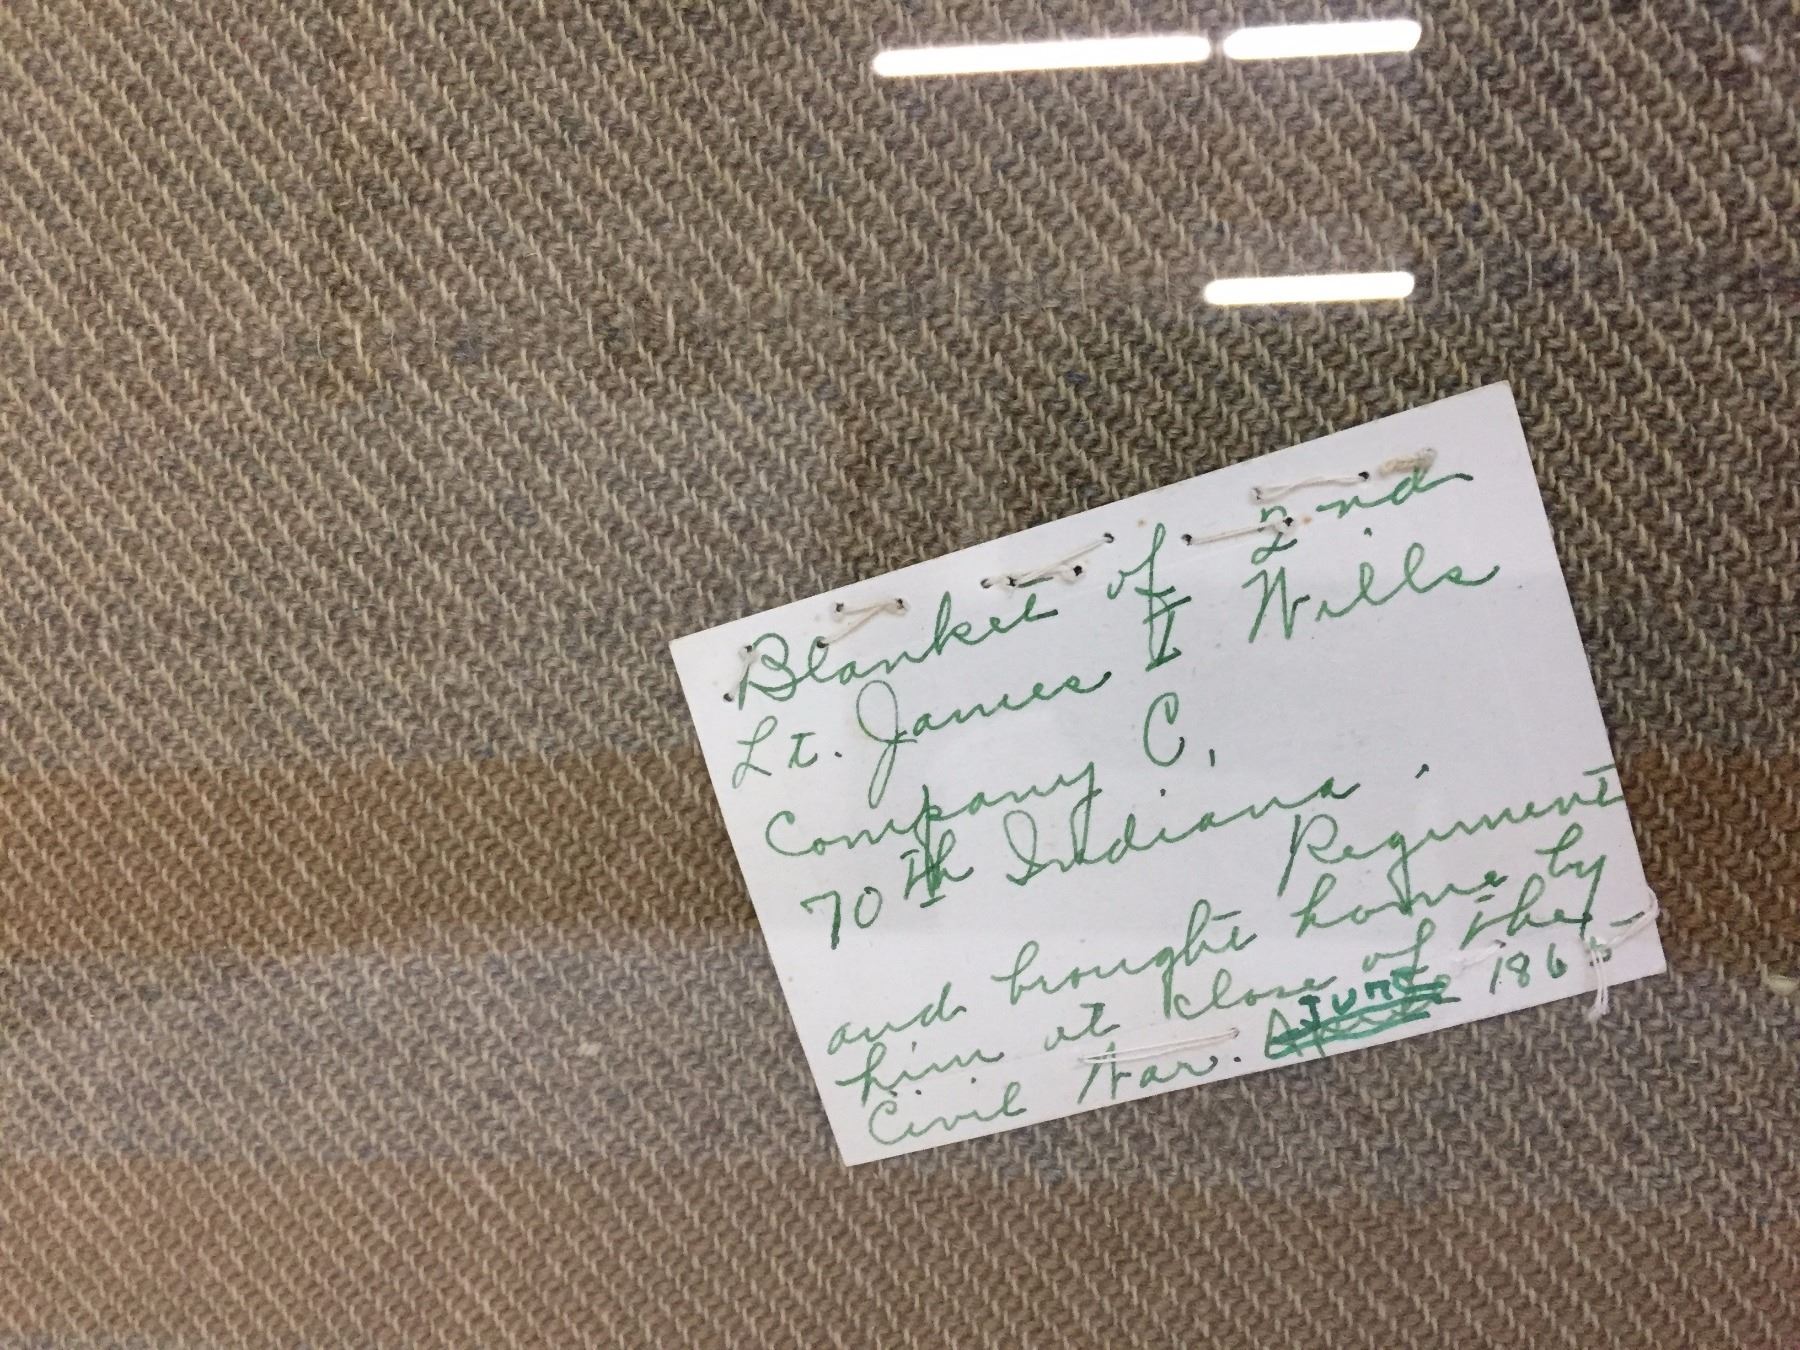 Blanket of 2nd
Lt. James I Wills
Company C,
70th Indiana.
Regiment
and brought home by
him at close of the
Civil War. June 1865